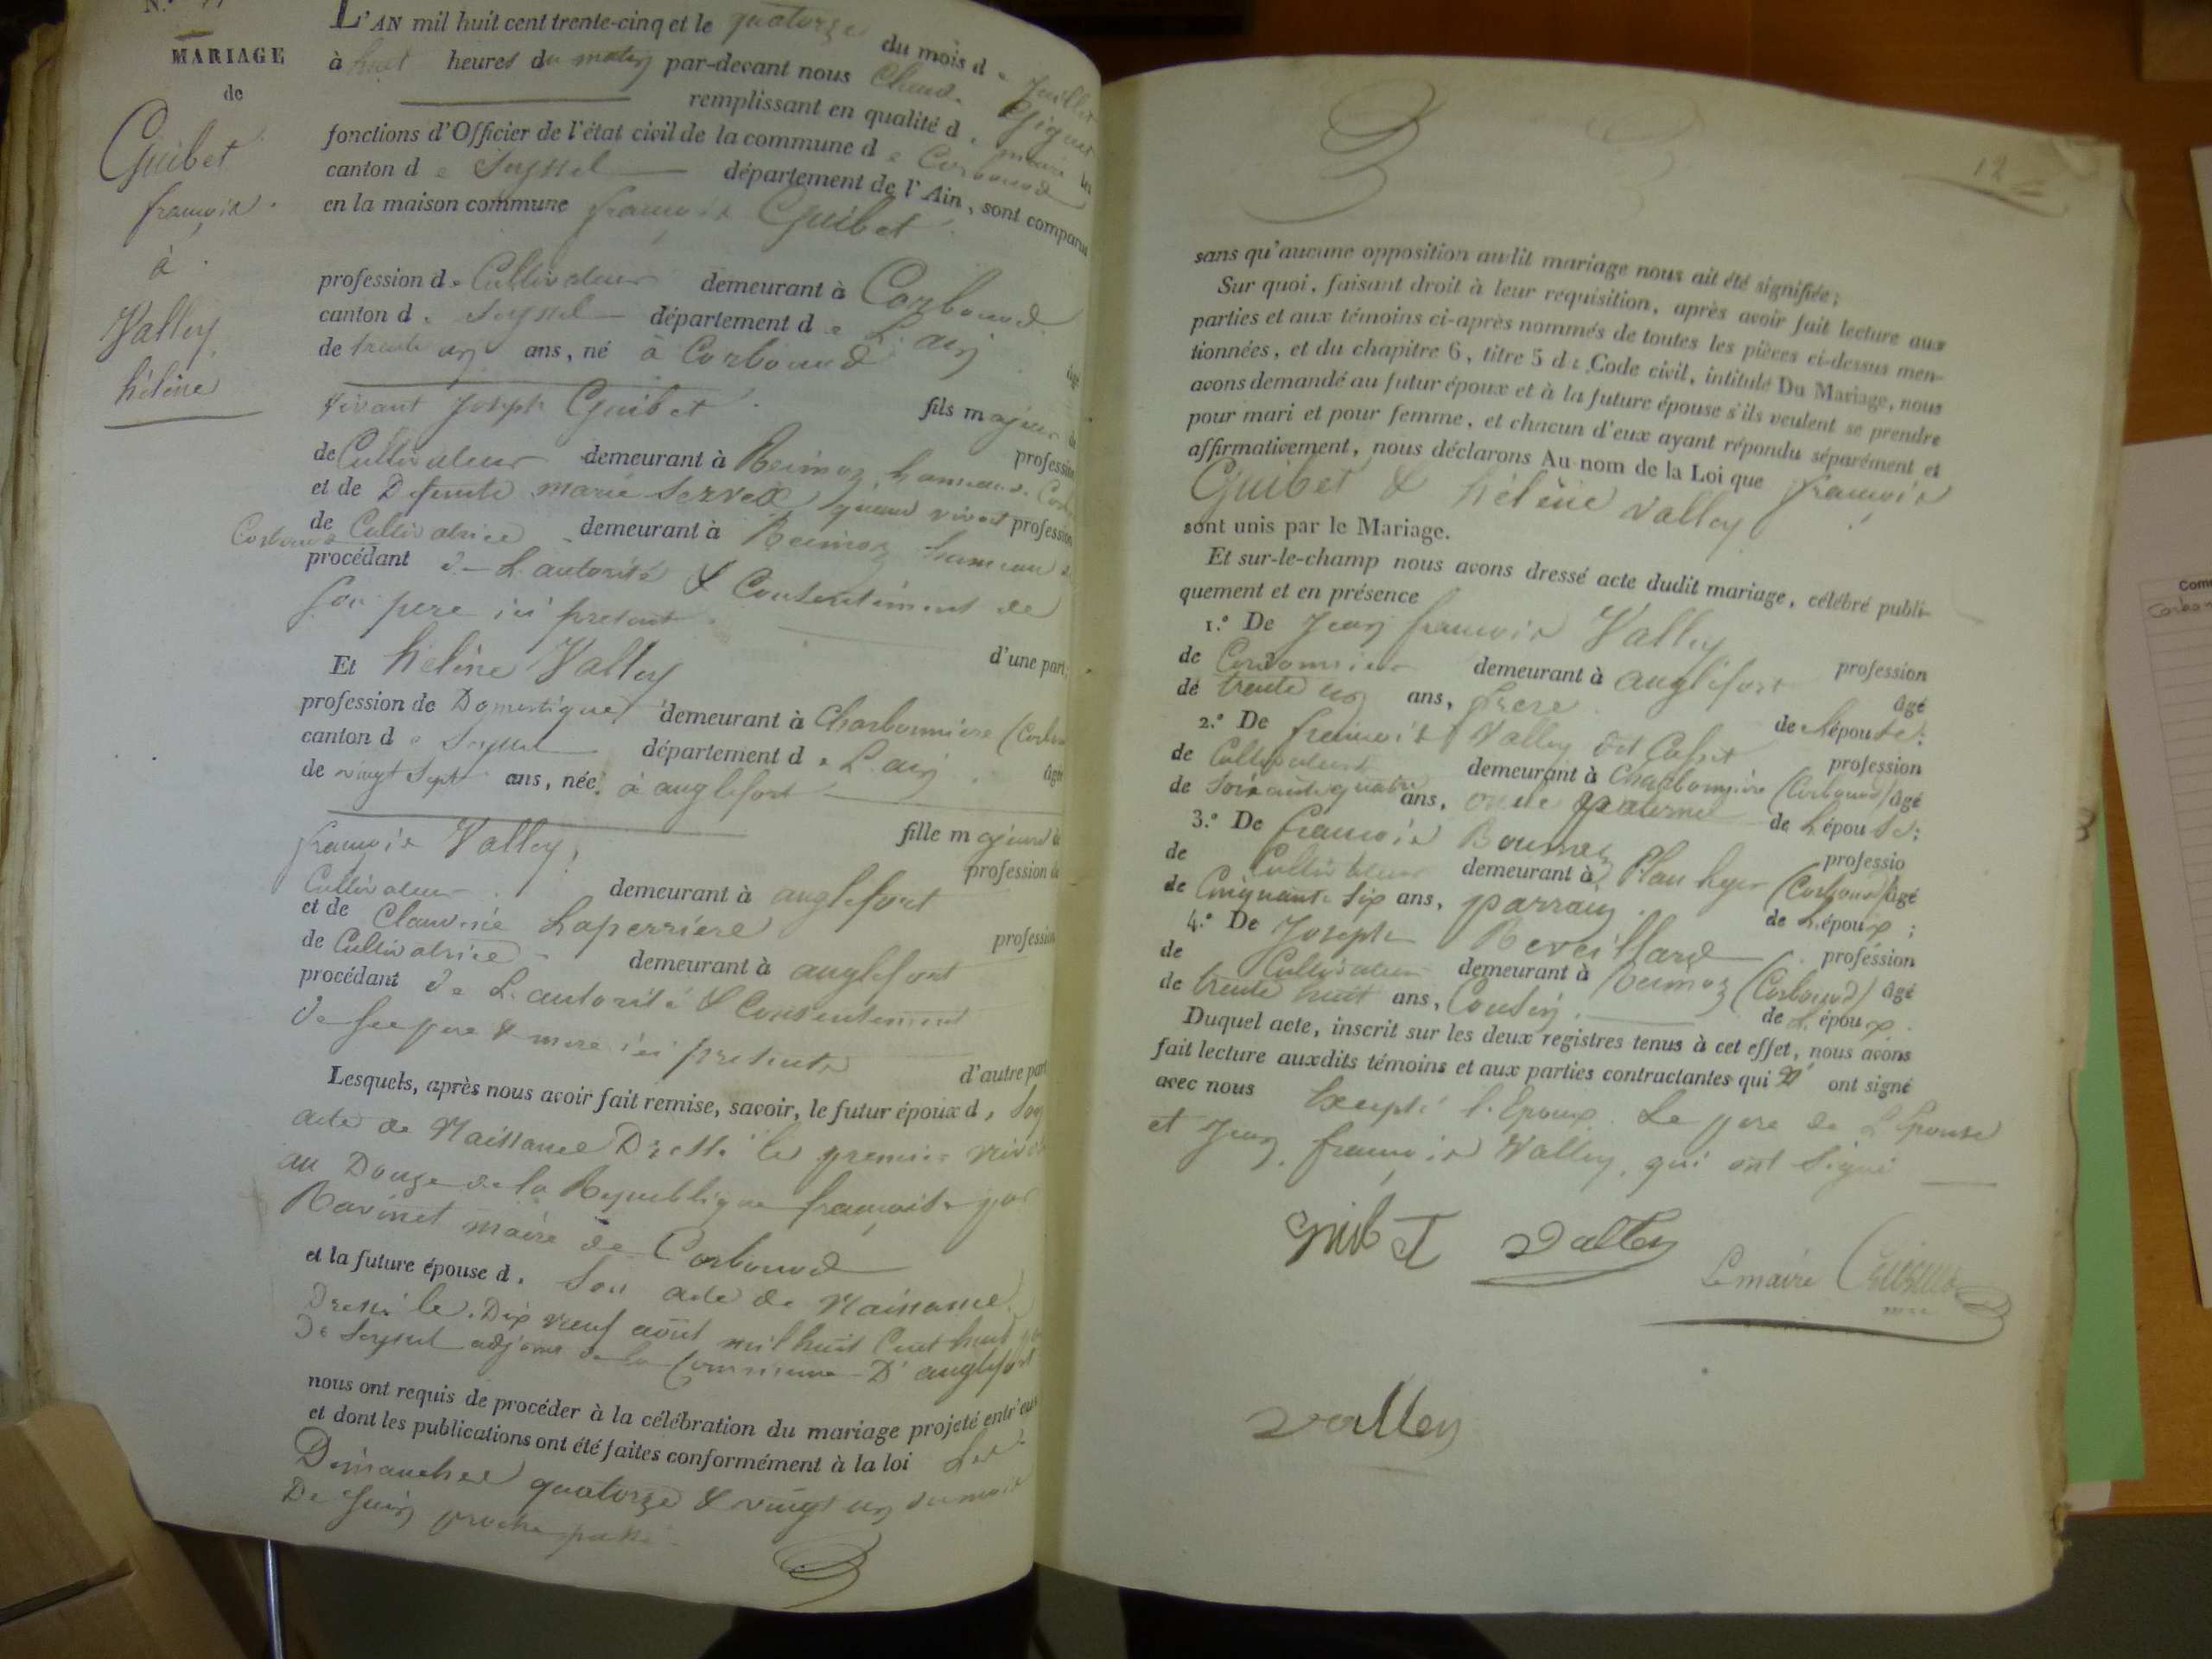 MARIAGE
de
Guibet
françois
à
Valley
hélène
L'AN mil huit cent trente-cinq et le quatorze du mois de Juillet
à huit heures du matin par-devant nous Claude
remplissant en qualité de maire les
fonctions d'Officier de l'état civil de la commune de Corbonod
canton de Seyssel département de l'Ain, sont comparus
en la maison commune françois Guibet
profession de Cultivateur demeurant à Corbonod
canton de Seyssel département de L'ain âgé
de trente un ans, né à Corbonod
fils majeur de
vivant Joseph Guibet profession
de Cultivateur demeurant à Reimoz hameau de
et de Defunte marie Servoz quand vivait profession
de Cultivatrice demeurant à Reimoz hameau de
Corbonod
procédant de L'autorité & Consentement de
son pere ici present d'une part;
Et hélène Valley
profession de Domestique demeurant à Charbonniere (Corbonod
canton de Seyssel département de L'ain âgée
de vingt sept ans, née à anglefort
fille majeure de
françois Valley, profession de
Cultivateur demeurant à anglefort
et de Claudine Laperriere profession
de Cultivatrice demeurant à anglefort
procédant de L'autorité & Consentement
de ses pere & mere ici presents d'autre part
Lesquels, après nous avoir fait remise, savoir, le futur époux de son
acte de Naissance Dressé le premier nivose
an Douze de la Republique française par
Ravinet maire de Corbonod
et la future épouse de son acte de Naissance
Dressé le Dix neuf août mil huit Cent huit par
De Seyssel adjoint de la Commune D'anglefort
nous ont requis de procéder à la célébration du mariage projeté entr'eux
et dont les publications ont été faites conformément à la loi Les
Dimanches quatorze & vingt un du mois
De Juin proche passé
12
sans qu'aucune opposition audit mariage nous ait été signifiée;
Sur quoi, faisant droit à leur requisition, après avoir fait lecture aux
parties et aux témoins ci-après nommés de toutes les pièces ci-dessus men-
tionnées, et du chapitre 6, titre 5 du Code civil, intitulé Du Mariage, nous
avons demandé au futur époux et à la future épouse s'ils veulent se prendre
pour mari et pour femme, et chacun d'eux ayant répondu séparément et
affirmativement, nous déclarons Au nom de la Loi que françois
Guibet & hélène Valley
sont unis par le Mariage.
Et sur-le-champ nous avons dressé acte dudit mariage, célébré publi-
quement et en présence
1.º De Jean françois Valley profession
de Cordonnier demeurant à anglefort âgé
de trente un ans, frere de L'épouse;
2.º De françois Valley dit profession
de Cultivateur demeurant à Charbonniere (Corbonod) âgé
de soixante quatre ans, oncle paternel de L'épouse;
3.º De françois professio
de Cultivateur demeurant à (Corbonod) âgé
de Cinquante six ans, parrain de L'époux;
4.º De Joseph Reveillard profession
de Cultivateur demeurant à Reimoz (Corbonod) âgé
de trente huit ans, Cousin de L'époux.
Duquel acte, inscrit sur les deux registres tenus à cet effet, nous avons
fait lecture auxdits témoins et aux parties contractantes qui n' ont signé
avec nous Excepté l'Epoux Le pere de L'Epouse
et Jean françois Valley, qui ont Signé
Valley
Le maire
valley